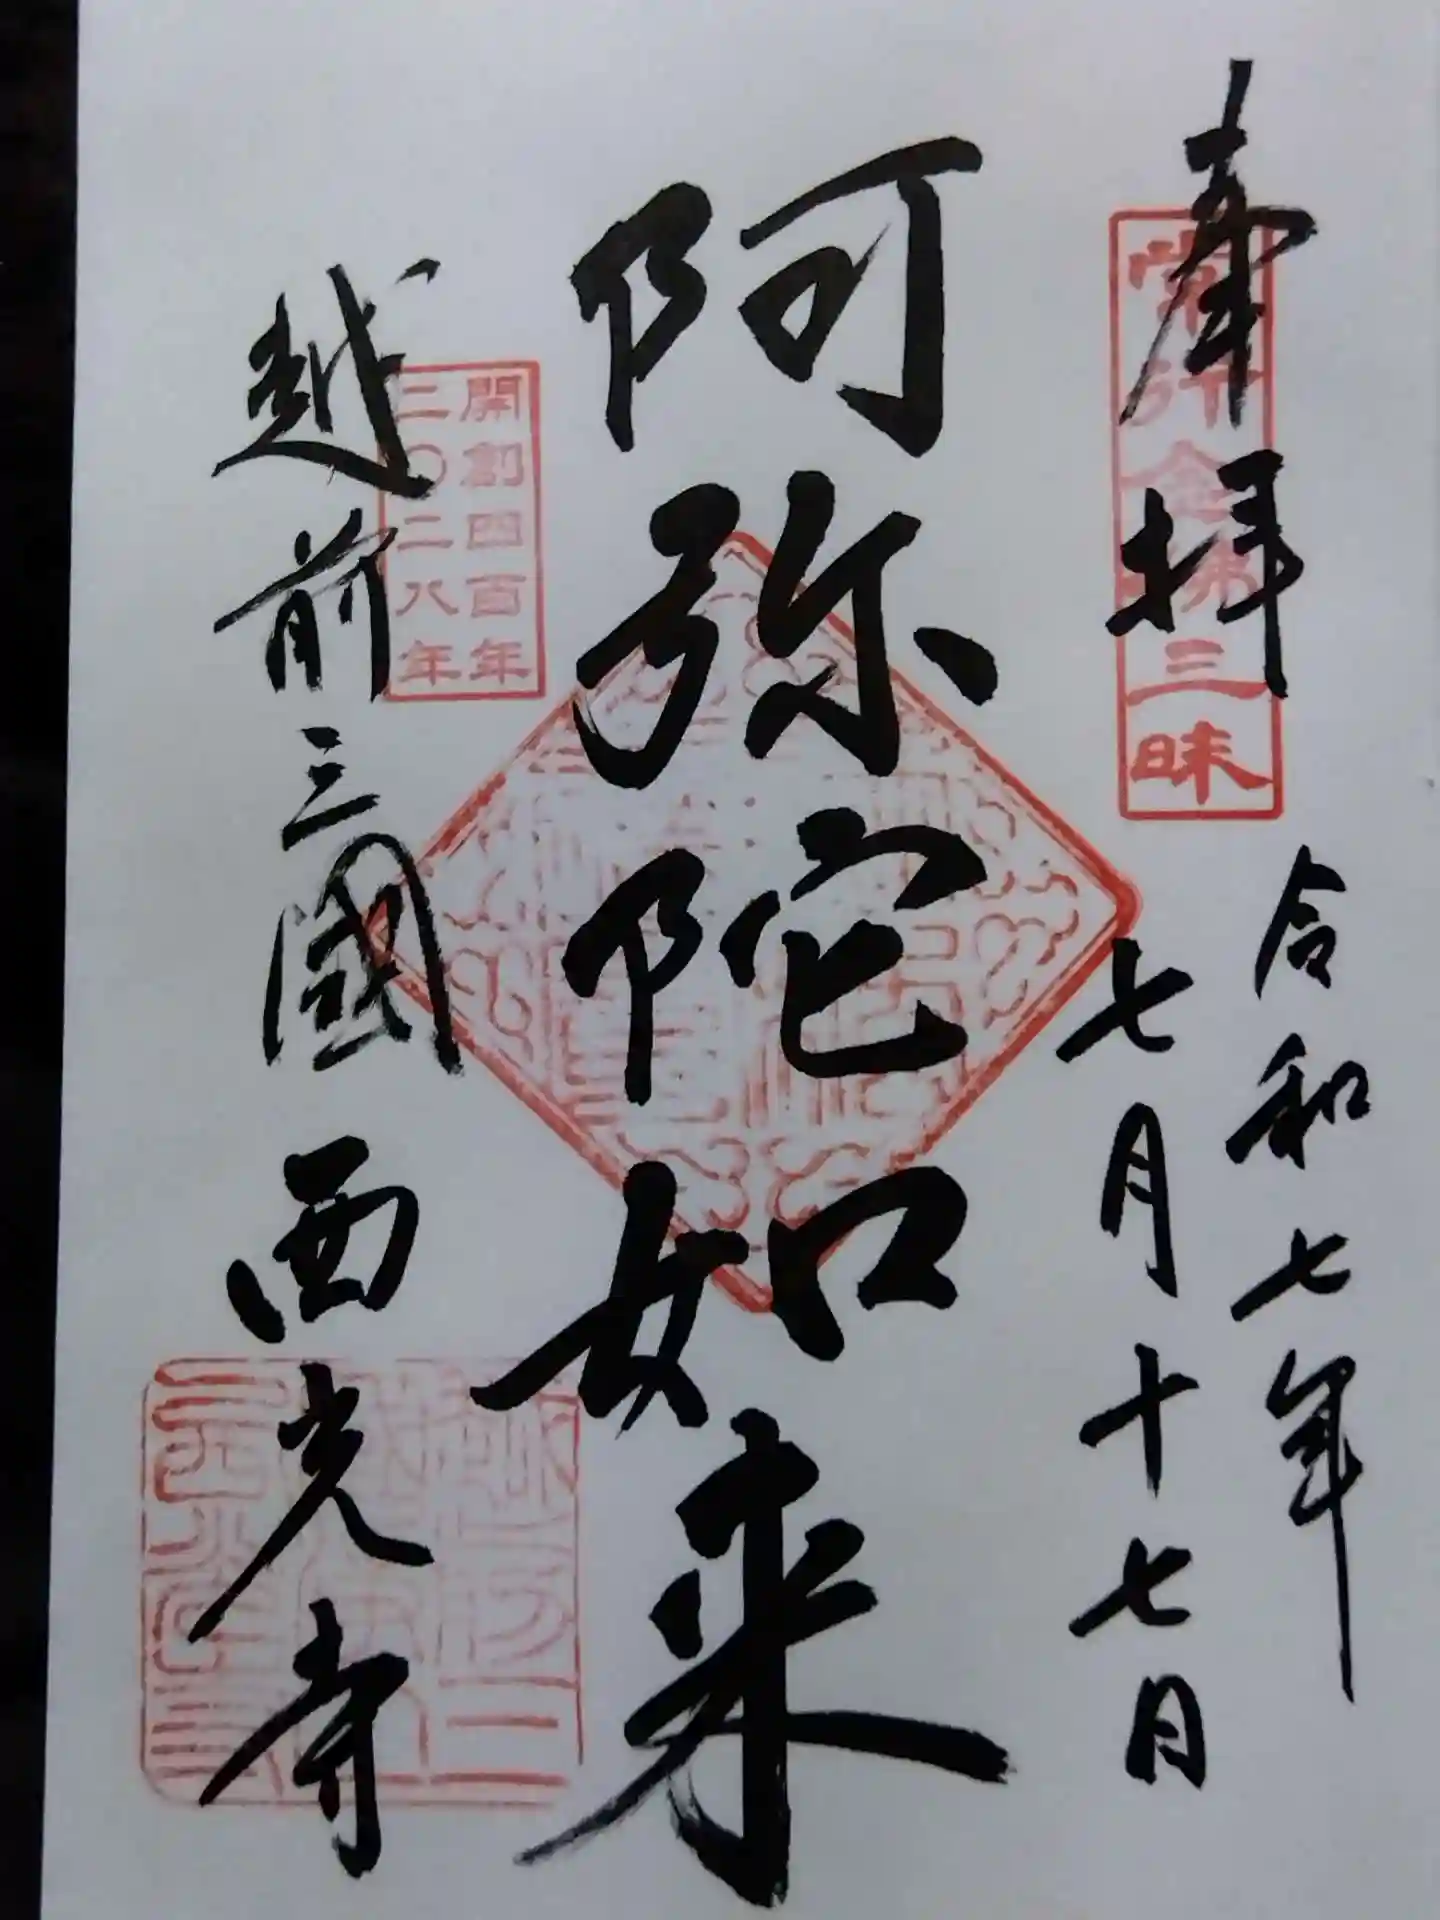 奉拝
常行念佛三昧
令和七年
七月十七日
阿弥陀如来
開創四百年
二〇二八年
越前三國
西光寺